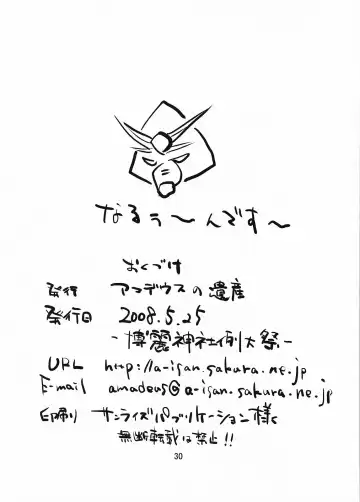 なるぅ〜んです〜
おくづけ
発行 アマデウスの遺産
発行日 2008.5.25
-博麗神社例大祭-
URL http://a-isan.sakura.ne.jp
E-mail amadeus@a-isan.sakura.ne.jp
印刷り サンライズパブリケーション様
無断転載は禁止!!
30